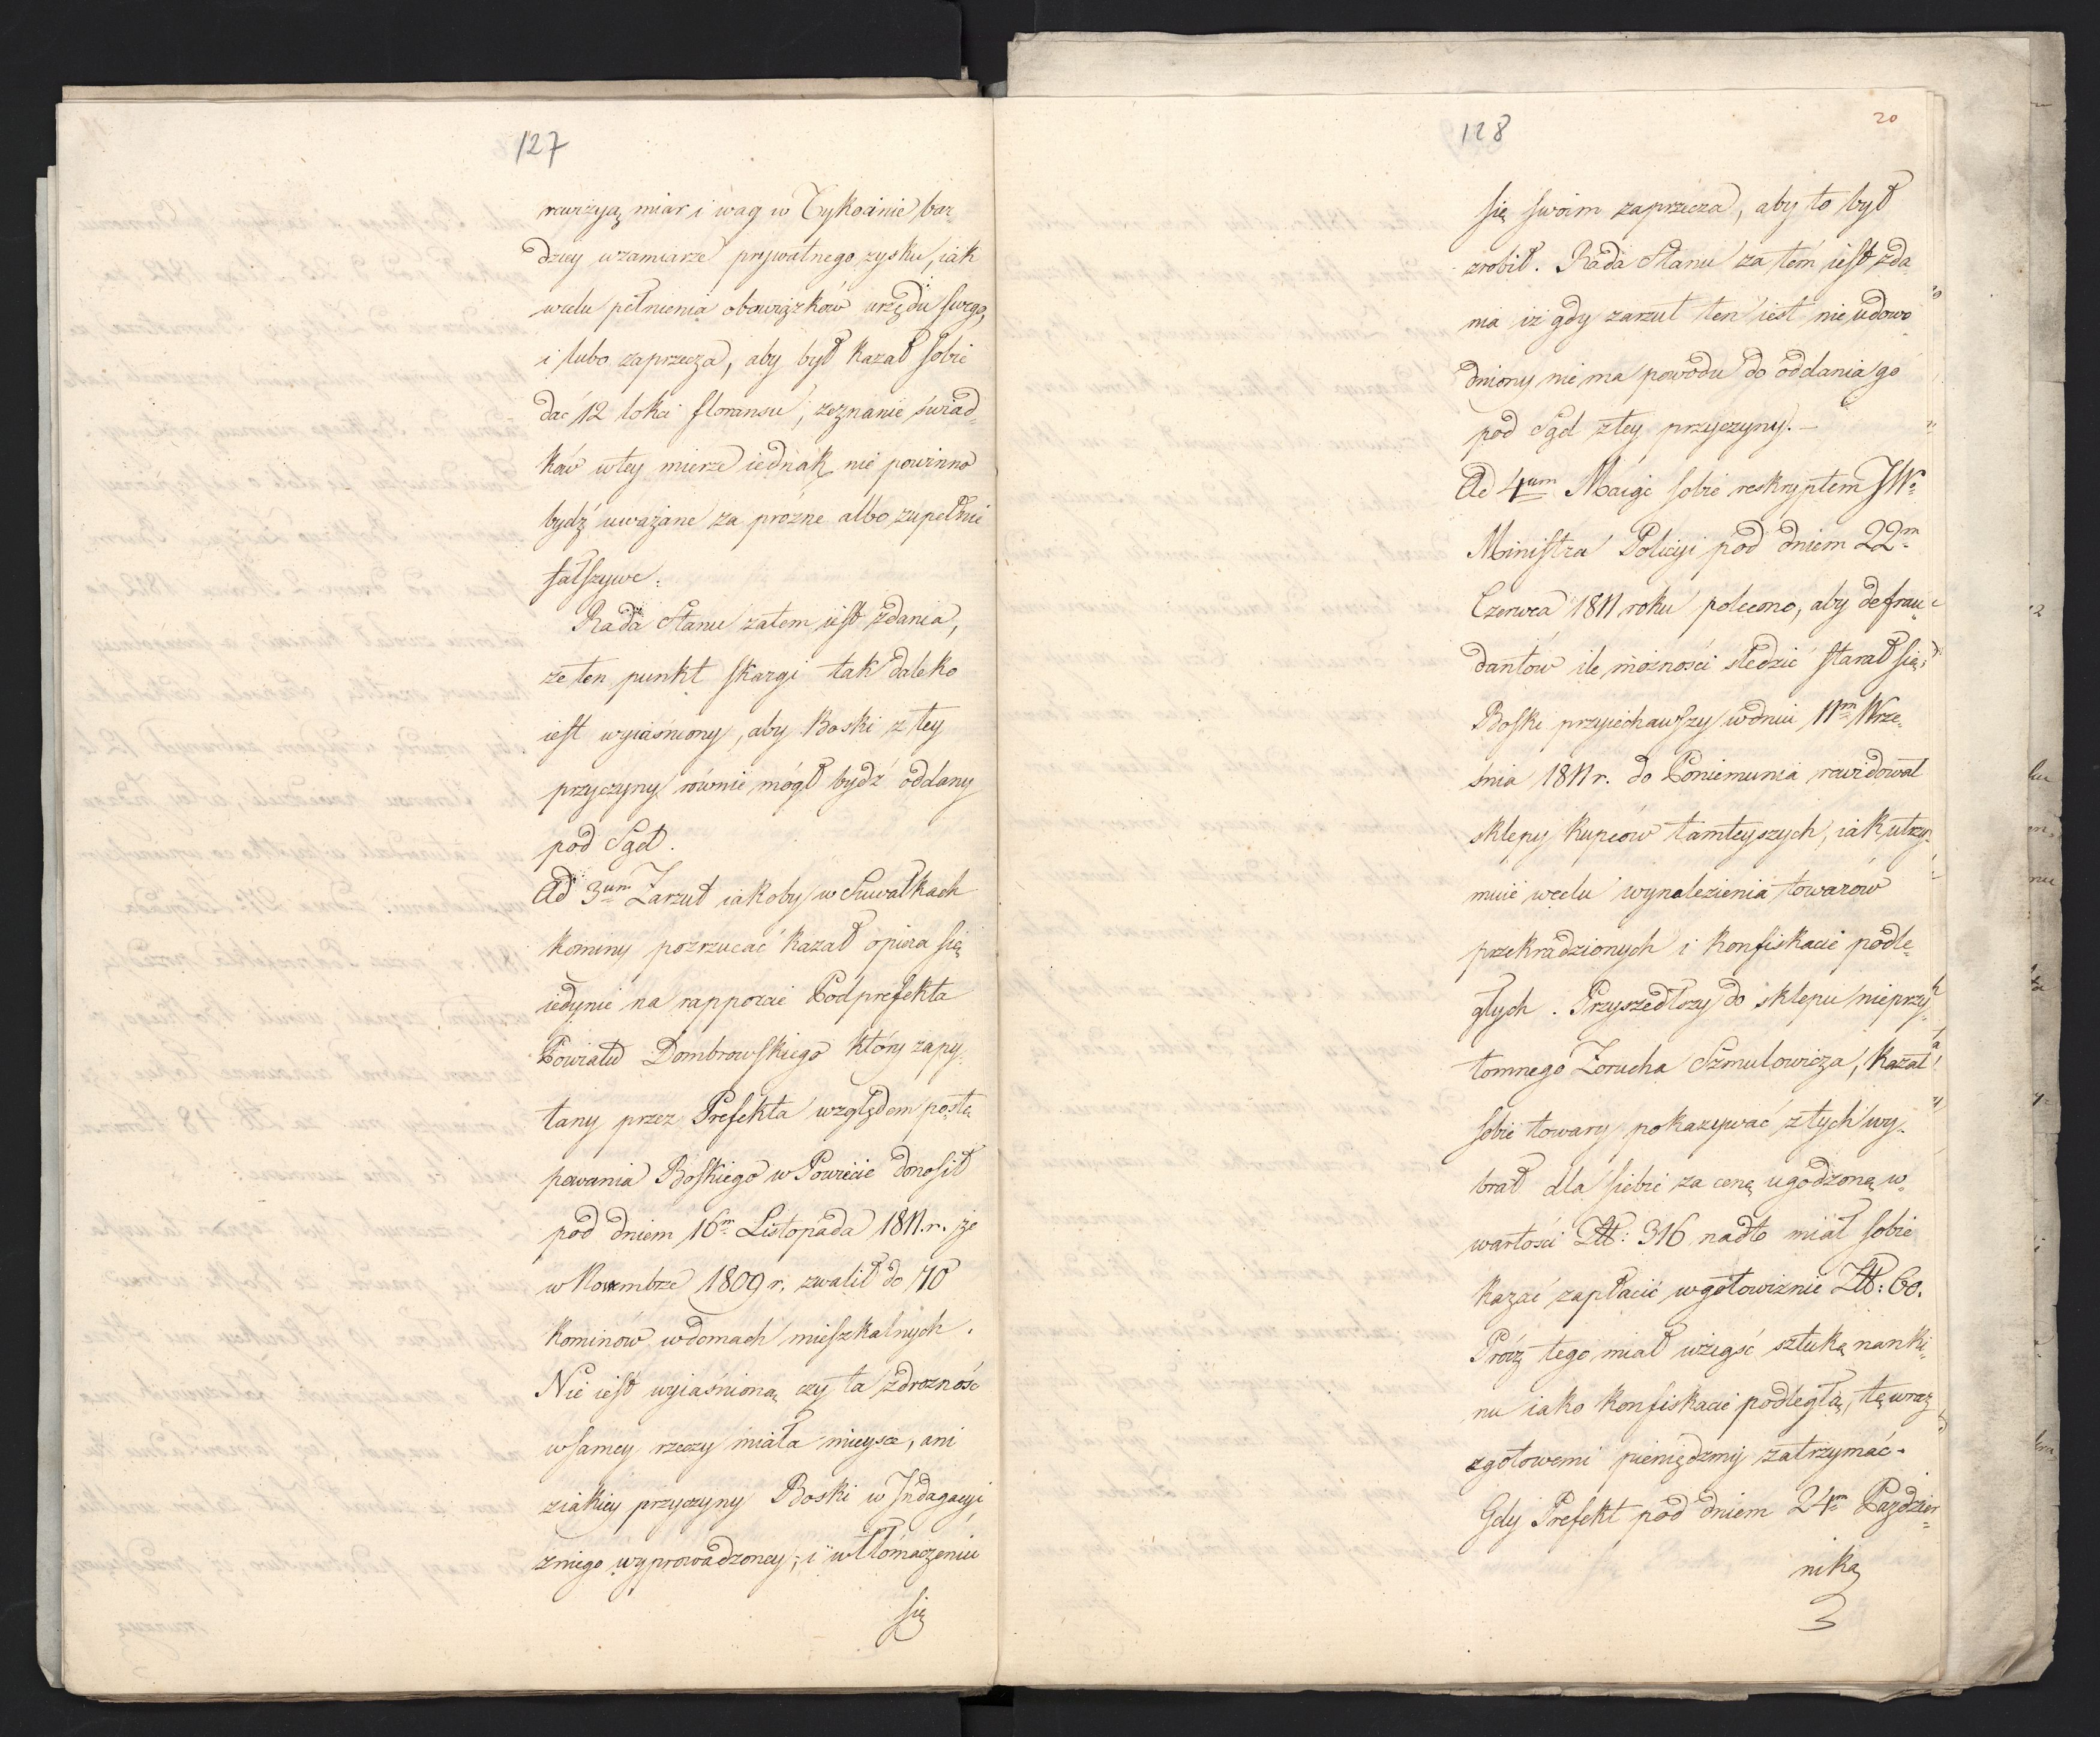 127
rewizyą miar i wag w Tykocinie bar
dziey wzamiarze prywatnego zysku, iak
wcelu pełnienia obowiązków urzędu swego,
i lubo zaprzecza, aby był kazał sobie
dać 12 łokci floransu, zeznanie świad
ków wtey mierze iednak nie powinno
bydź uważane za prózne albo zupełnie
fałszywe.
Rada Stanu zatem iest zdania,
że ten punkt skargi tak daleko
iest wyiaśniony, aby Boski z tey
przyczyny równie mógł bydź oddany
pod Sąd.
Ad 3um Zarzut iakoby w Suwałkach
kominy pozrzucać kazał opiera się
iedynie na rapporcie Podprefekta
Powiatu Dombrowskiego który zapy
tany przez Prefekta względem postę
powania Boskiego w Powiecie donosił
pod dniem 16m Listopada 1811.r. że
w Nowembrze 1809 r. zwalił do 70
kominów wdomach mieszkalnych.
Nie iest wyiaśnioną czy ta zdrozność
wsamey rzeczy miała mieysce, ani
ziakiey przyczyny Boski w Indagacyi
zniego wyprowadzoney; i wtłómaczeniu
się
128
20
się swoim zaprzecza, aby to był
zrobił. Rada Stanu za tém iest zda
nia iż gdy zarzut ten iest nie udowo
dniony nie ma powodu do oddania go
pod Sąd ztey przyczyny. —
Ad 4um Maiąc sobie reskryptem JWo
Ministra Policyi pod dniem 22m
Czerwca 1811 roku polecono, aby defrau
dantów ile możności śledzić starał się,
Boski przyiechawszy wdniu 11m Wrze
śnia 1811 r. do Poniemunia rewidował
sklepy kupców tamteyszych, iak utrzy
muie wcelu wynalezienia towarów
przekradzionych i konfiskacie podle
głych. Przyszedłszy do sklepu nieprzy
tomnego Zorucha Szmulowicza, kazał
sobie towary pokazywać ztych wy
brał dla siebie za cenę ugodzoną w
wartości Złł: 316 nadto miał sobie
kazać zapłacić wgotowiznie Złł: 60.
Prócz tego miał wziąść sztukę nanki
nu iako konfiskacie podległą, tę wraz
zgotowemi pieniędzmi zatrzymać.
Gdy Prefekt pod dniem 24m Paździer
nika
3